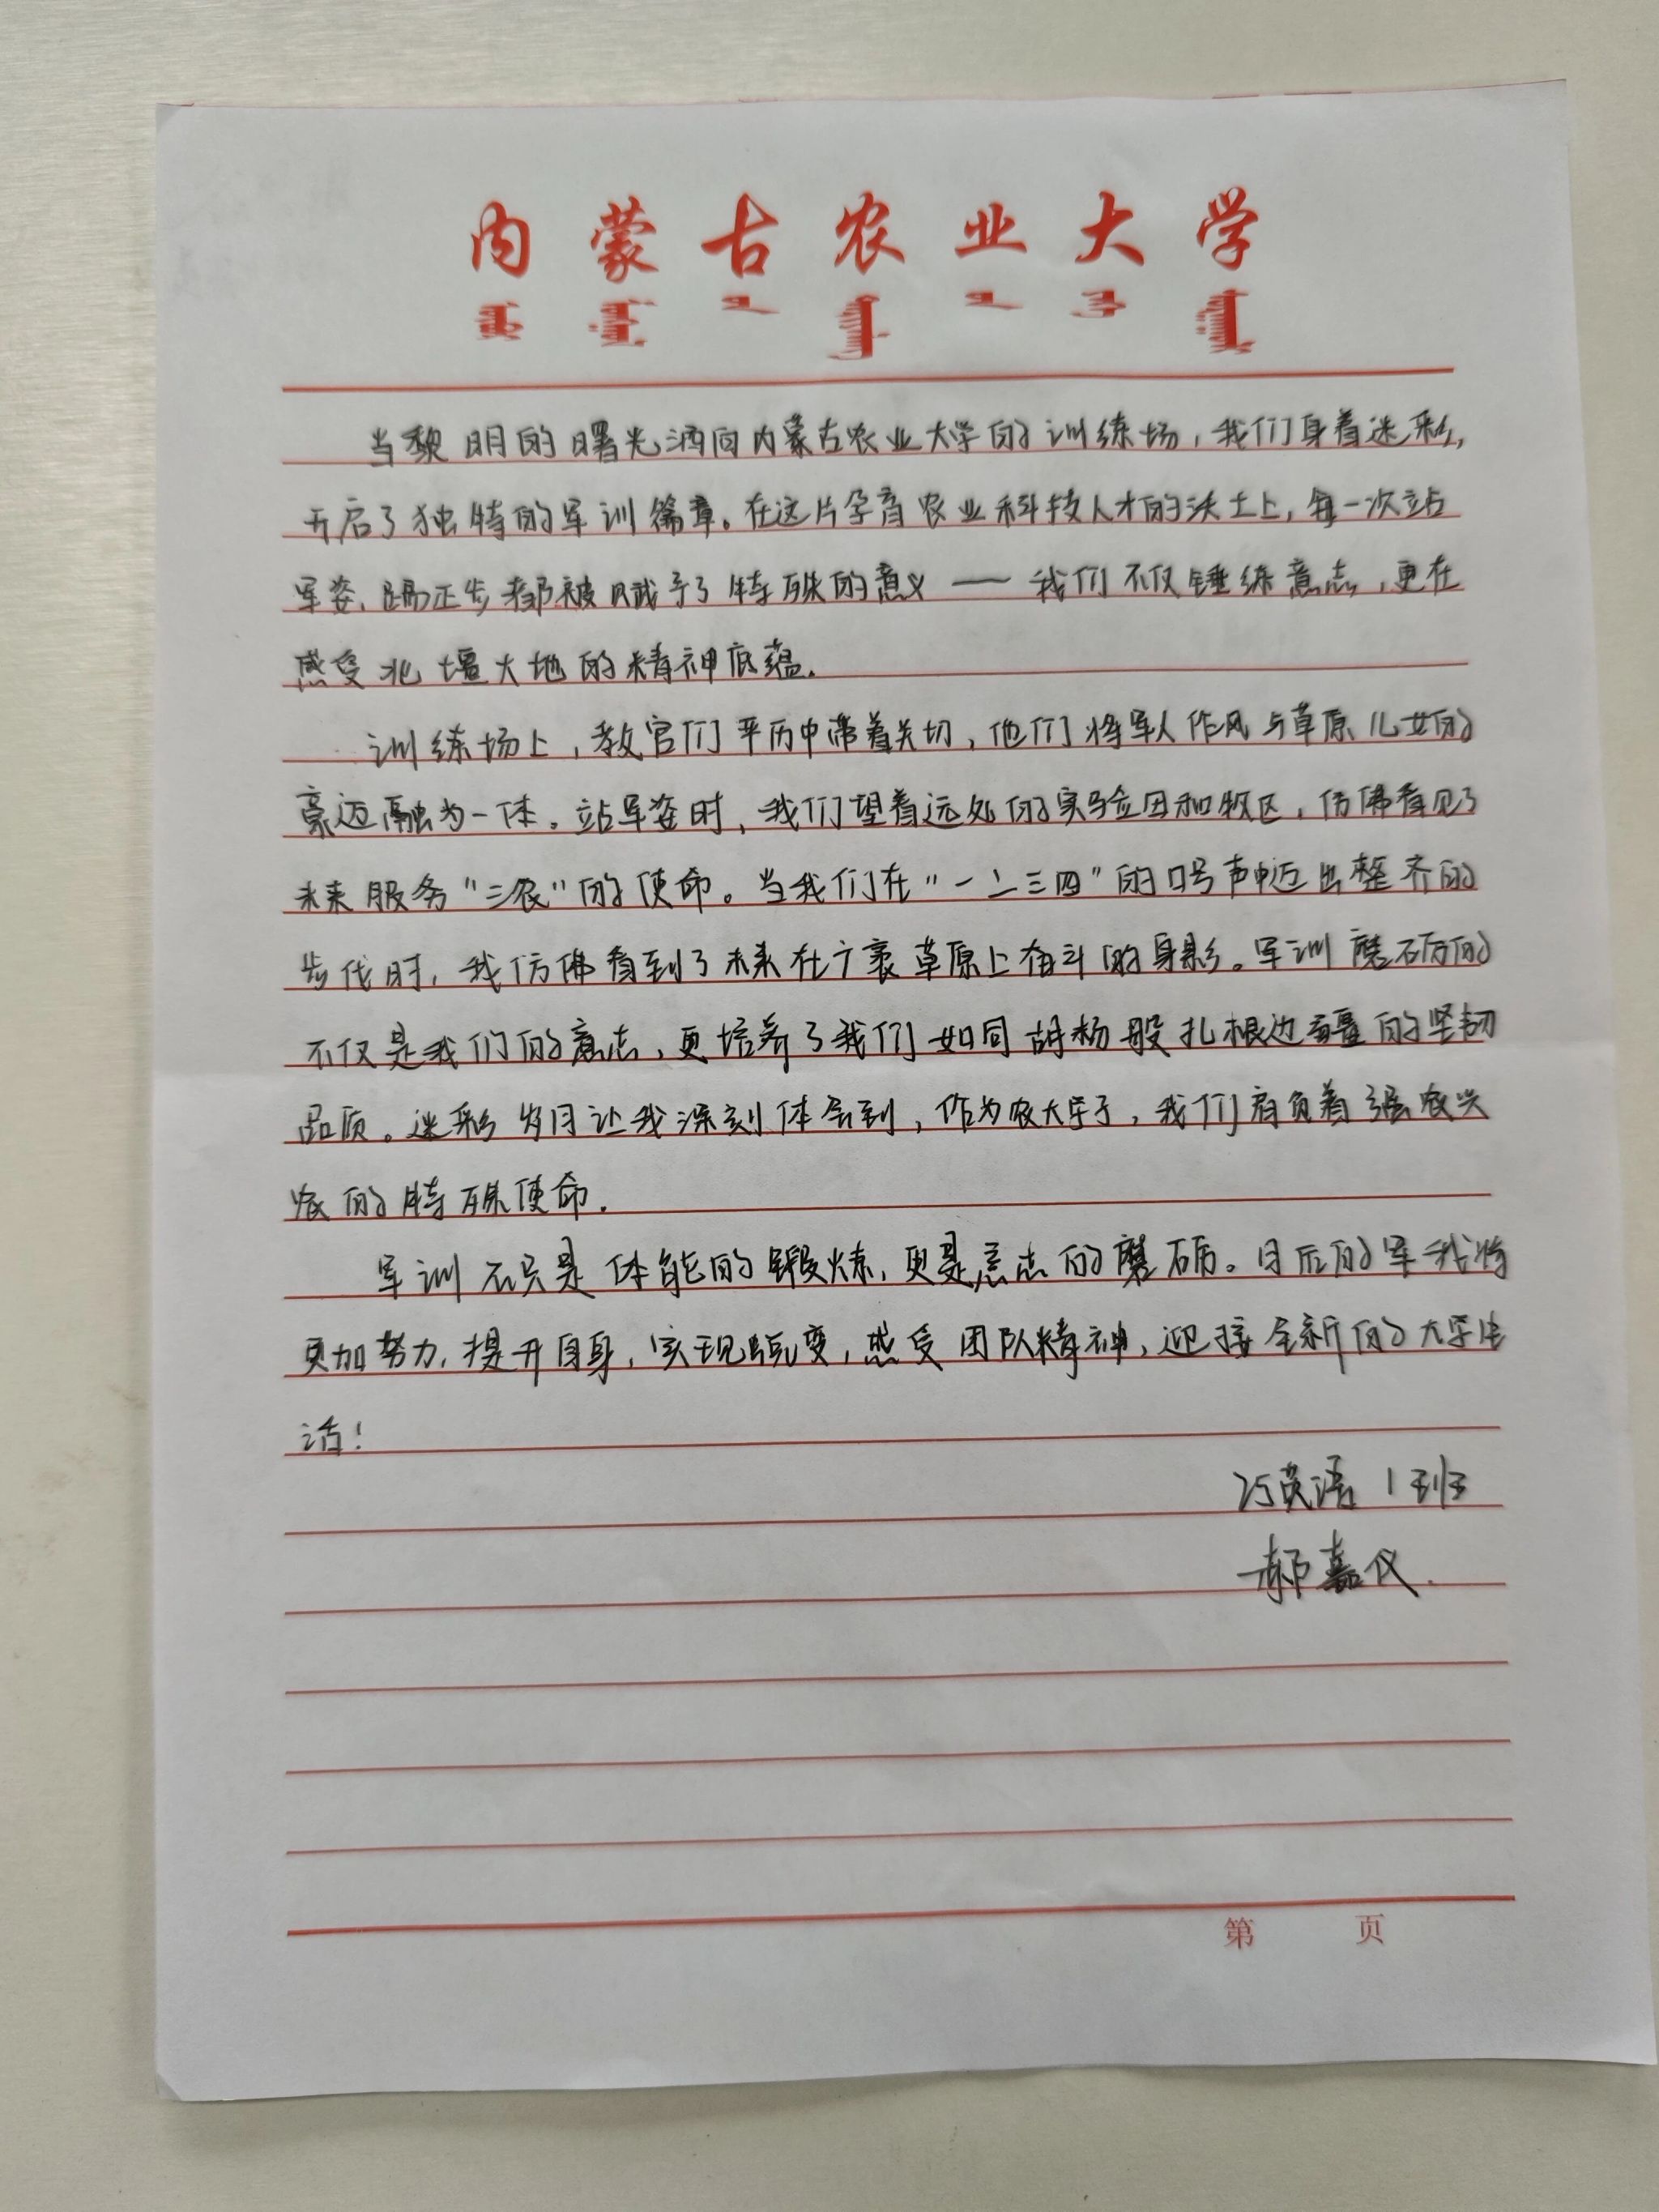 内蒙古农业大学
当黎明的曙光洒向内蒙古农业大学的训练场，我们身着迷彩，
开启了独特的军训篇章。在这片孕育农业科技人才的沃土上，每一次站
军姿、踢正步都被赋予了特殊的意义——我们不仅锤练意志，更在
感受北壃大地的精神底蕴。
训练场上，教官们平历中带着关切，他们将军人作风与草原儿女的
豪迈融为一体。站军姿时，我们望着远处的实验田和牧区，仿佛看见了
未来服务“三农”的使命。当我们在“一二三四”的口号声中迈出整齐的
步伐时，我仿佛看到了未来在广袤草原上奋斗的身影。军训磨砺的
不仅是我们的意志，更培养了我们如同胡杨般扎根边疆的坚韧
品质。迷彩岁月让我深刻体会到，作为农大学子，我们肩负着强农兴
农的特殊使命。
军训不只是体能的锻炼，更是意志的磨砺。日后的军我将
更加努力，提升自身，实现蜕变，感受团队精神，迎接全新的大学生
活！
25英语1班
郝嘉仪.
第 页